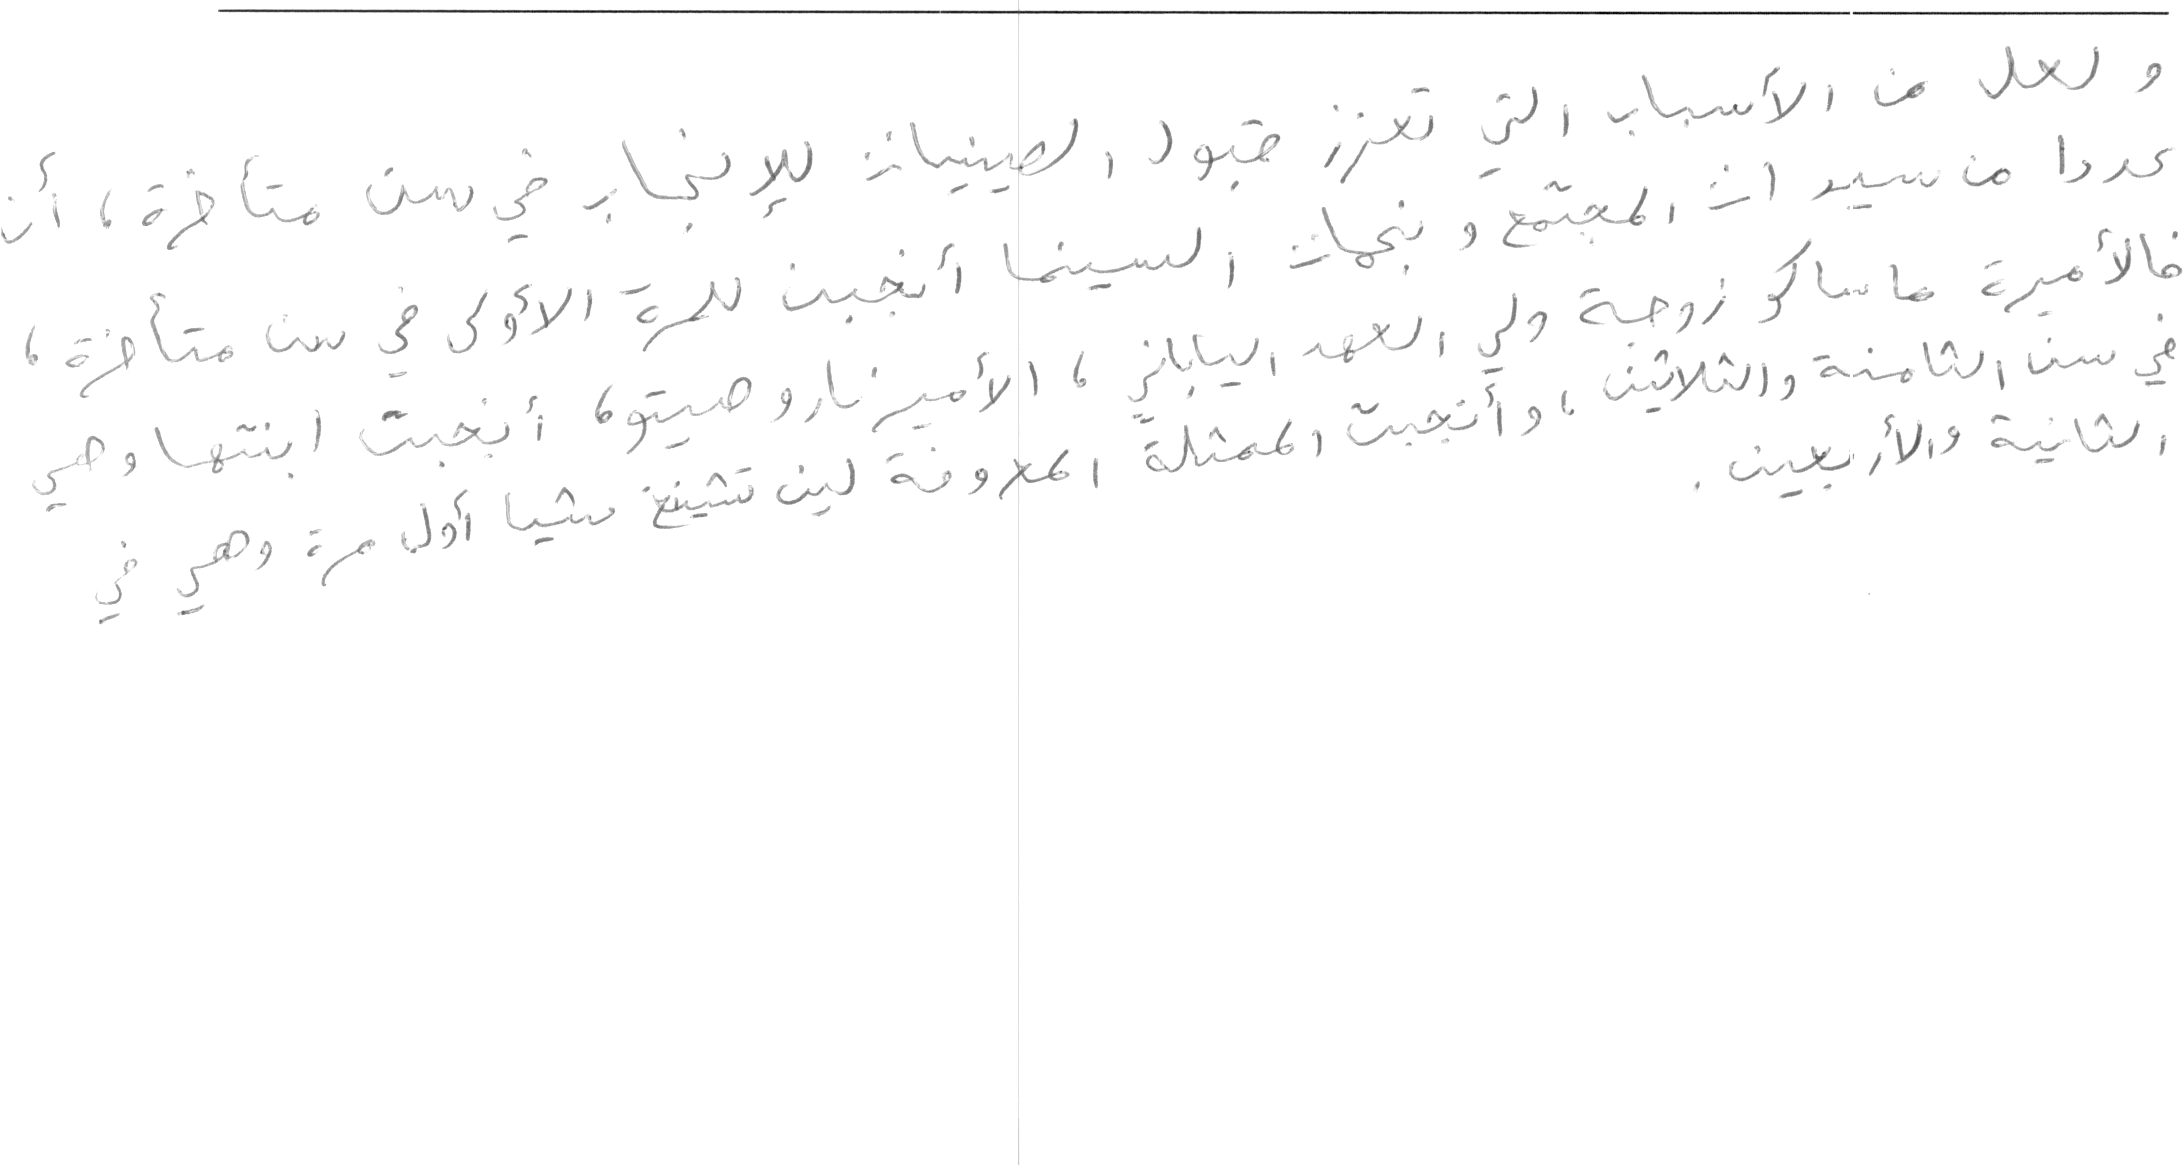 ولعل من الأسباب التي تعزز قبول الصينيات للإنجاب في سن متأخرة، أن
عددا من سيدات المجتمع ونجمات السينما أنجبن للمرة الأولى في سن متأخرة،
فالأميرة ماساكو زوجة ولي العهد الياباني، الأمير ناروهيتو، أنجبت ابنتها وهي
في سن الثامنة والثلاثين، وأنجبت الممثلة المعروفة لين تشينغ شيا أول مرة وهي في
الثانية والأربعين.